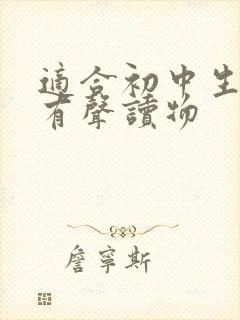 適合初中生
有聲讀物
詹寧斯